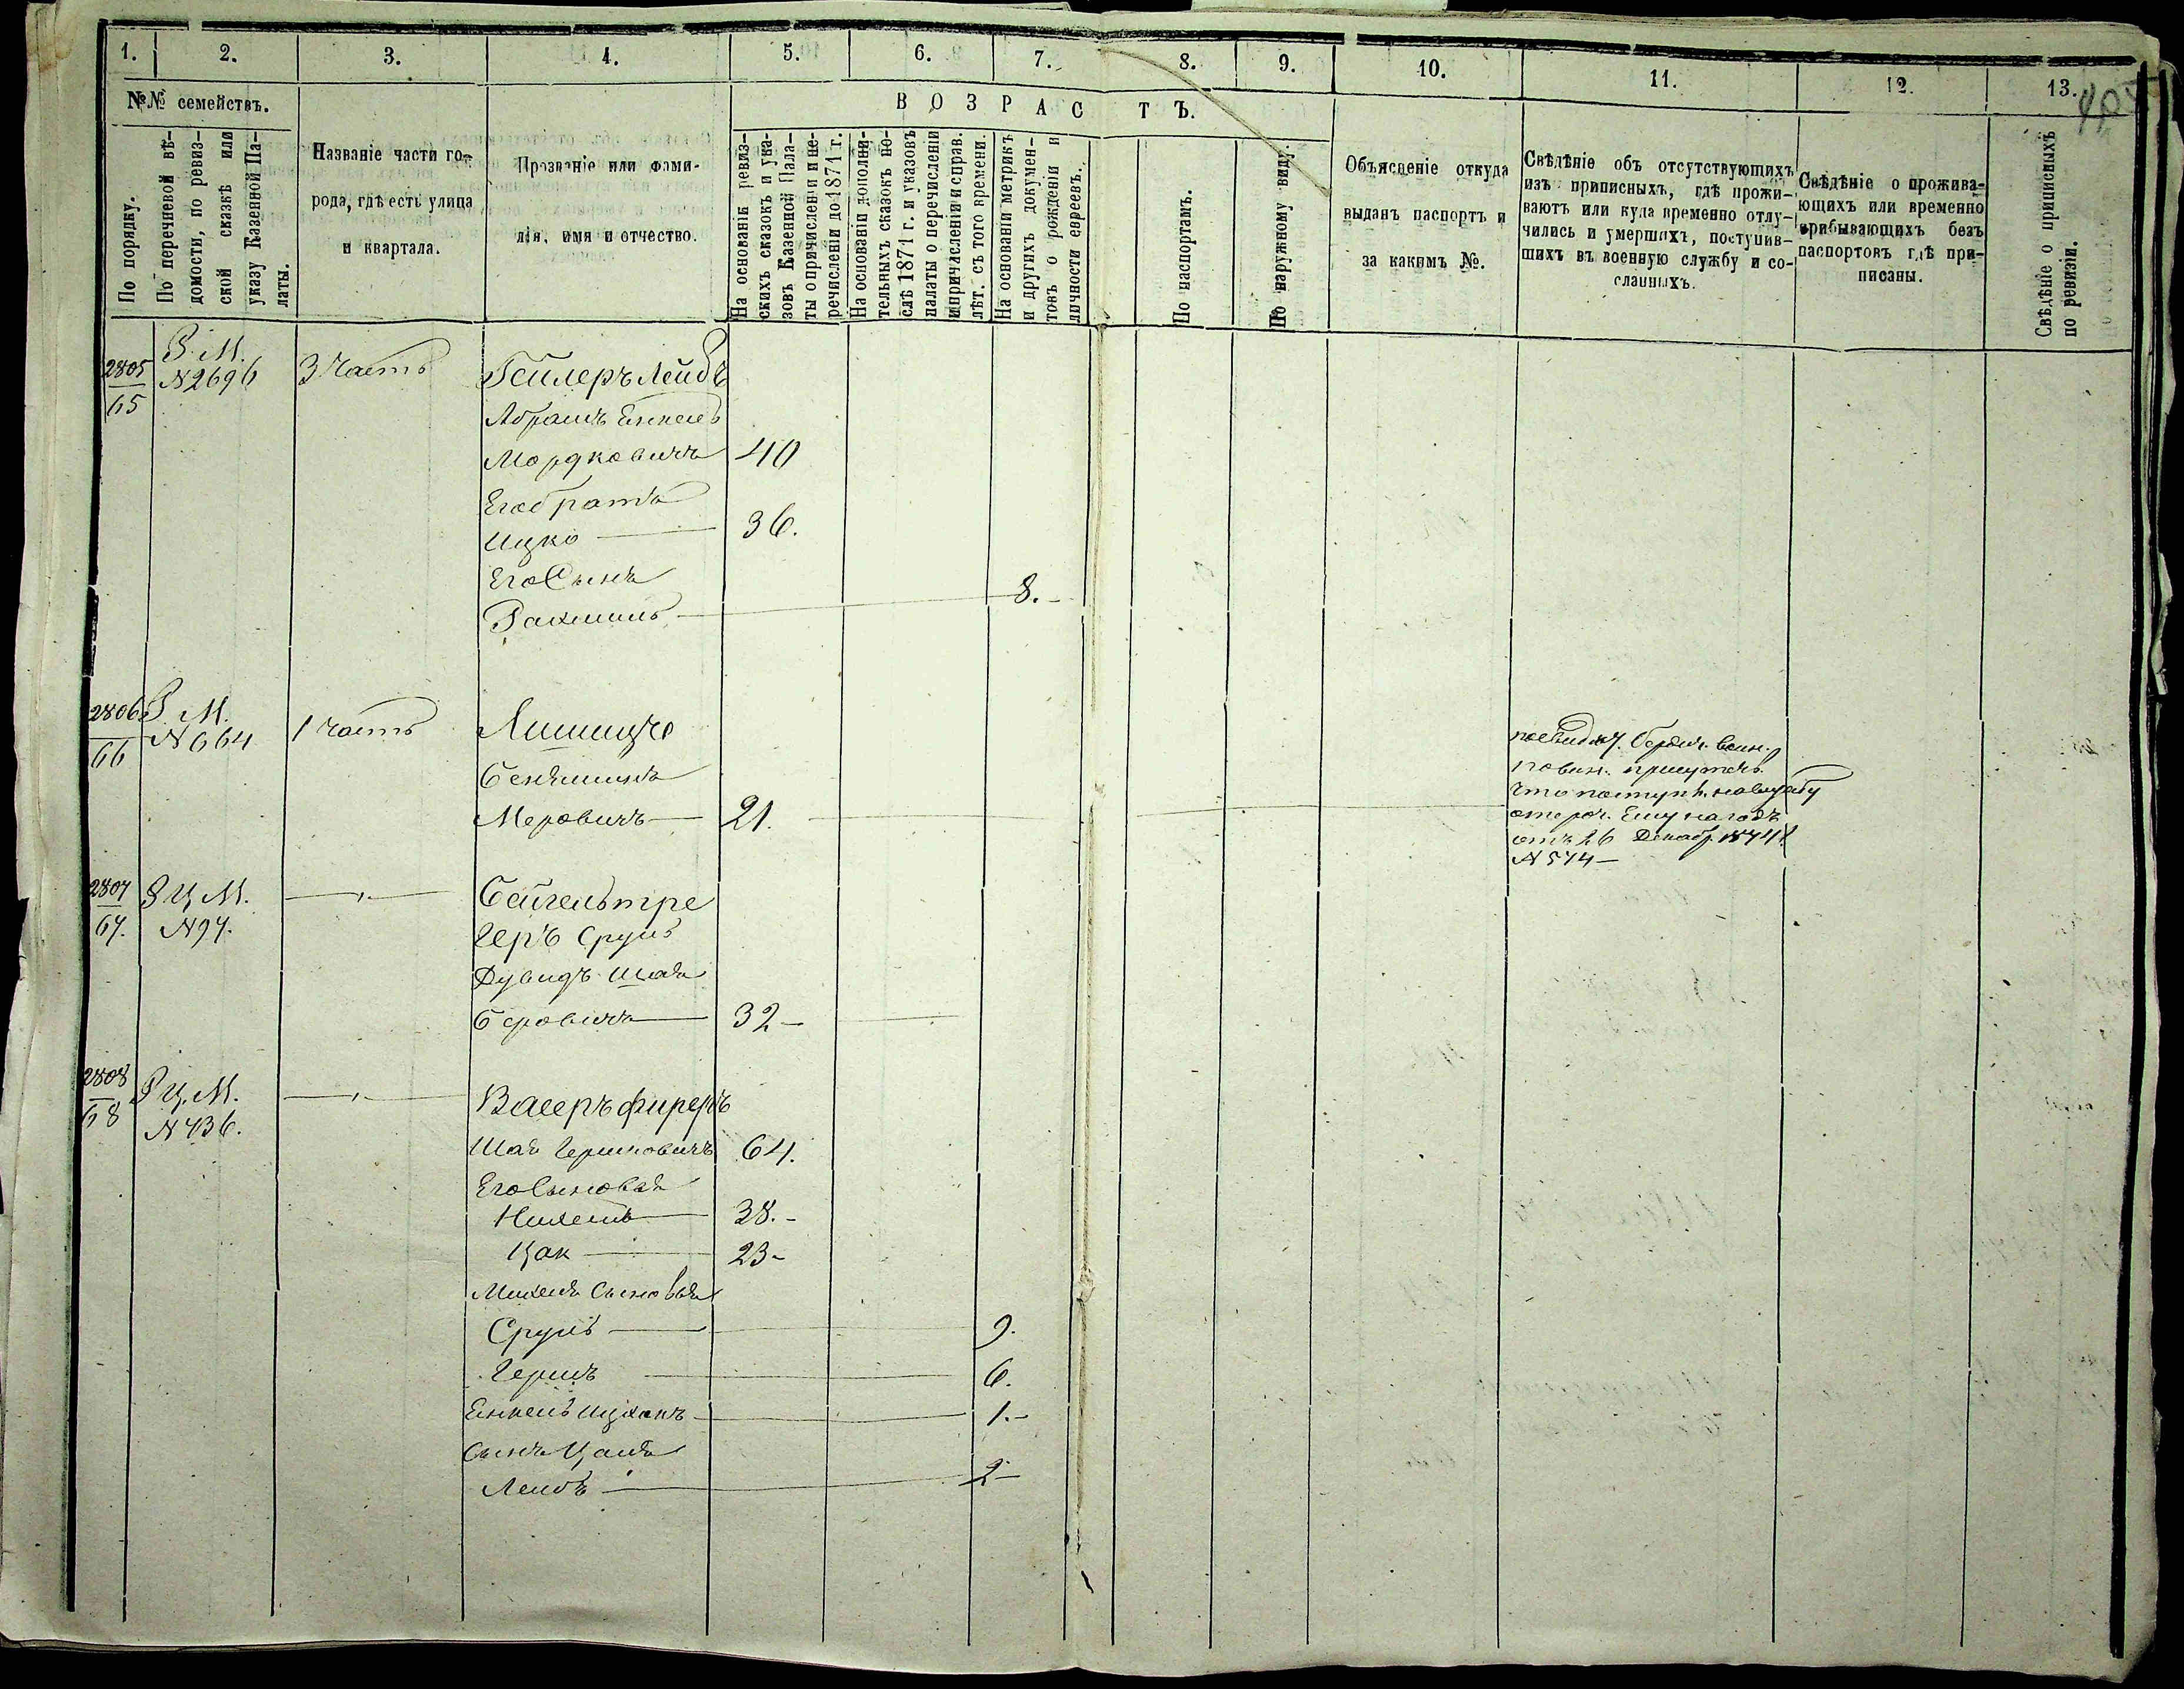 1. 2. 3. 4. 5. 6. 7. 8. 9. 10. 11. 12. 13.
№№ семействъ.
В О З Р А С Т Ъ.
По порядку.
По перечневой вѣ-
домости, по ревиз-
ской сказкѣ или
указу Казенной Па-
латы.
Названіе части го-
рода, гдѣ есть улица
и квартала.
Прозваніе или фами-
лія, имя и отчество.
На основаніи ревиз-
скихъ сказокъ и ука-
зовъ Казенной Пала-
ты о причисленіи и пе-
речисленіи до 1871 г.
На основаніи дополни-
тельныхъ сказокъ по-
слѣ 1871 г. и указовъ
палаты о перечисленіи
и причисленіи и справ.
лѣт. съ того времени.
На основаніи метрикъ
и другихъ докумен-
товъ о рожденіи и
личности евреевъ.
По паспортамъ.
По наружному виду.
Объясненіе откуда
выданъ паспортъ и
за какимъ №.
Свѣдѣніе объ отсутствующихъ
изъ приписныхъ, гдѣ прожи-
ваютъ или куда временно отлу-
чились и умершихъ, поступив-
шихъ въ военную службу и со-
сланныхъ.
Свѣдѣніе о прожива-
ющихъ или временно
прибывающихъ безъ
паспортовъ гдѣ при-
писаны.
Свѣдѣніе о приписныхъ
по ревизіи.
2805 Р. М. 3 часть Гейлеръ Лейбъ
65 №2696
Абрамъ Енкель
Мордковичъ 40
Его братъ
Ицко 36.
Его Сынъ
Рахмиль 8.
2806 Р. М. 1 часть
66 №664
Бенямина
Меровичъ 21.
повин. присутств.
отъ 26 Декабр. 1874 г.
№ 574
2807 Р Ц М. Бейгельтре
67. №97. геръ Сруль
Дувидъ Шая
Беровичъ 32
2808 Р Ц. М. Васерфиреръ
68 №436.
Шая Гершковичъ 64.
Его Сыновья
38.
Цак 23
Михеля Сыновья
Сруль 9.
Гершъ 6.
Енкель Ицхокъ 1.
Сынъ
Лейбъ 2